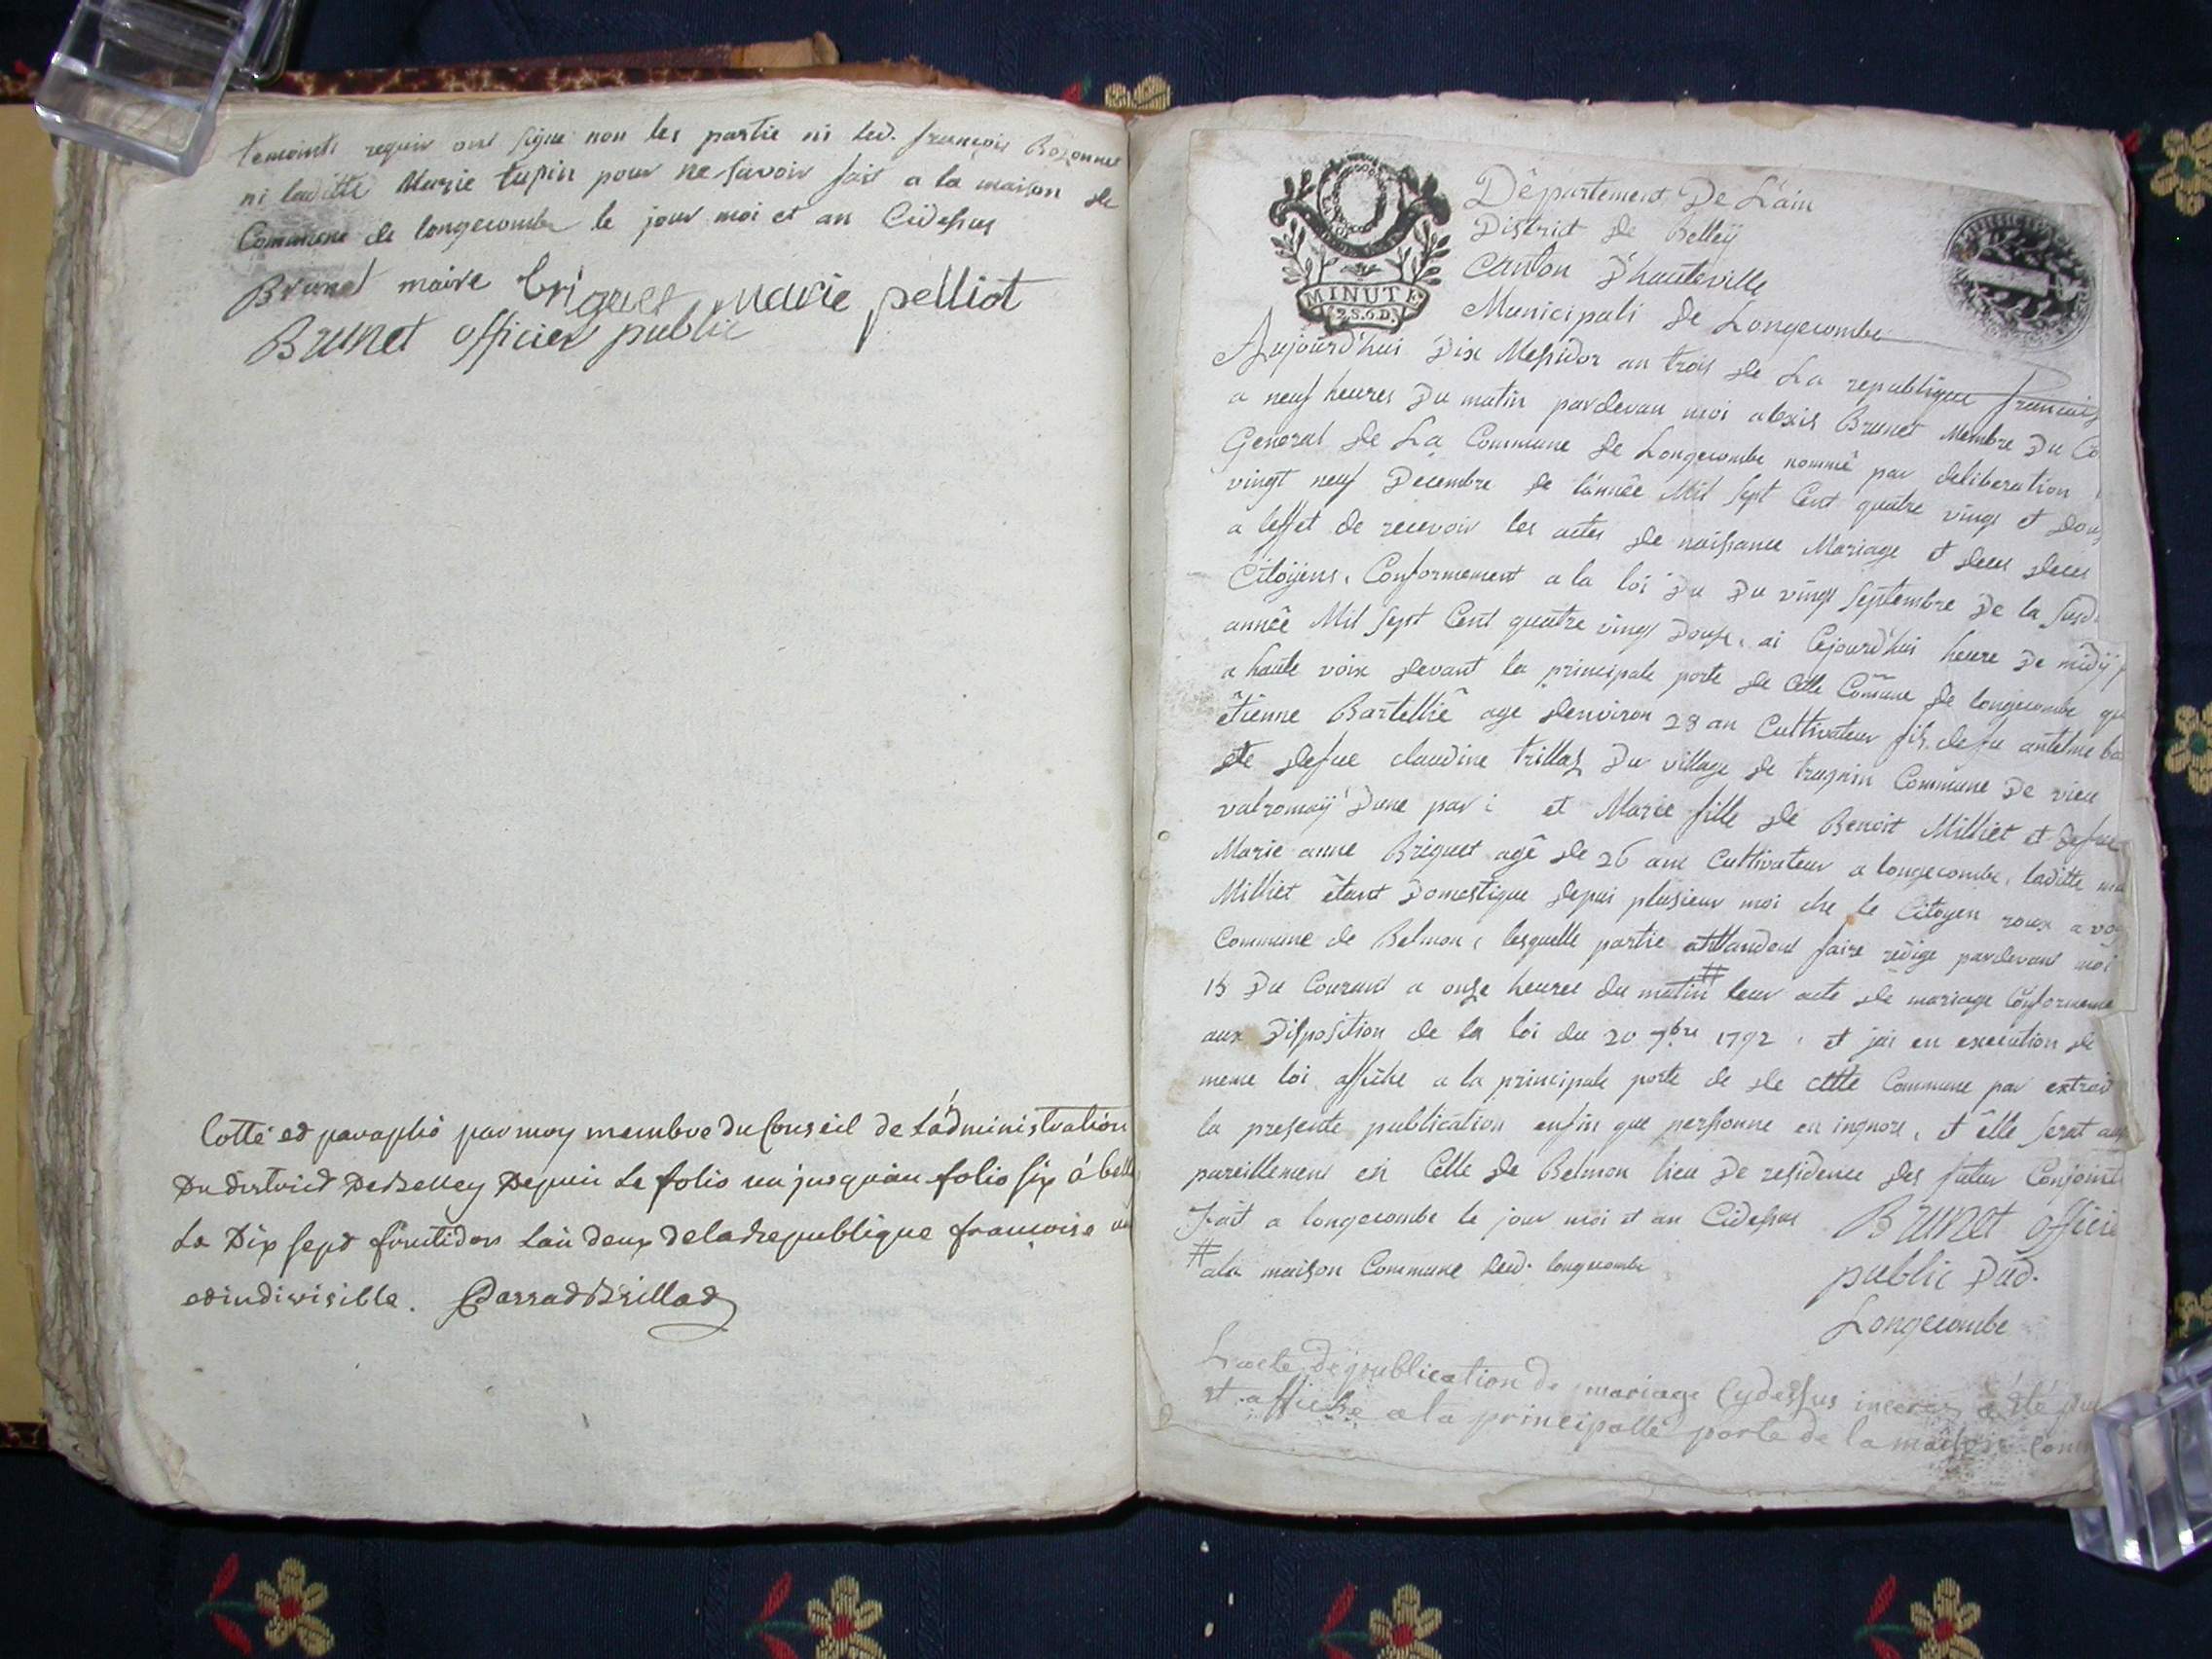 temoints requir ont signe non les partie ni led. françois Bozonnet
ni laditte Marie tupin pour ne savoir fait a la maison de
Commune de longecombe le jour moi et an Cidessus
Brunet maire briguet marie pelliot
Brunet officier public
Cotté et paraphé par moy membre du Conseil de L'administration
Du district De Belley Depuis Le folio un jusquau folio six a bell
Le Dix sept fructidor L'an deux de la republique francoise un
et indivisible. Parrad Brillad
Département De L'ain
District de Belleÿ
Canton D'hauteville
Municipali de Longecombe
MINUTE
2.S.6.D.
Aujourd'hui Dix Messidor an trois de La republique francais
a neuf heures Du matin pardevan moi alexis Brunet Membre Du Co
General de La Commune de Longecombe nommé par deliberation
vingt neuf Decembre de l'année Mil Sept Cent quatre vingt et dou
a leffet de recevoir les actes de naissance Mariage et deces deces
Citoÿens, Conformement a la loi du Du vingt Septembre De la Susd.
année Mil Sept Cent quatre vingt Douse, ai Cejourd'hui heure De midÿ p
a haute voix devant la principale porte de Cette Comune de longecombe qu
êtienne Bartellié age denviron 28 an Cultivateur fils defu antelme ba
et defue claudine trillaz Du village de trugnin Commune De vieu
valromaÿ Dune par : et Marie fille de Benoit Milliet et defue
Marie anne Briguet agé de 26 ans Cultivateur a longecombe, laditte ma
Milliet êtant Domestique depui plusieur moi che le Citoyen roux a vo
Commune de Belmon, lesquelle partie attandont faire rédige pardevant moi
15 Du Courant a onze heures du matin # leur acte de mariage Conformeme
aux Disposition de la loi du 20 7bre 1792, et jai en execution de
meme loi affiche a la principale porte de de cette Commune par extrait
la presente publication enfin que personne en ingnore, et êlle serat aus
pareillement en Celle de Belmon lieu De residence des futur Conjoint
Fait a longecombe le jour moi et an Cidessus Brunet offici
# ala maison Commune dud. longecombe
public Dud.
Longecombe
L'acte de publication de mariage Cydessus incerez a été pu
et affiche a la principalle porte de la maison Com